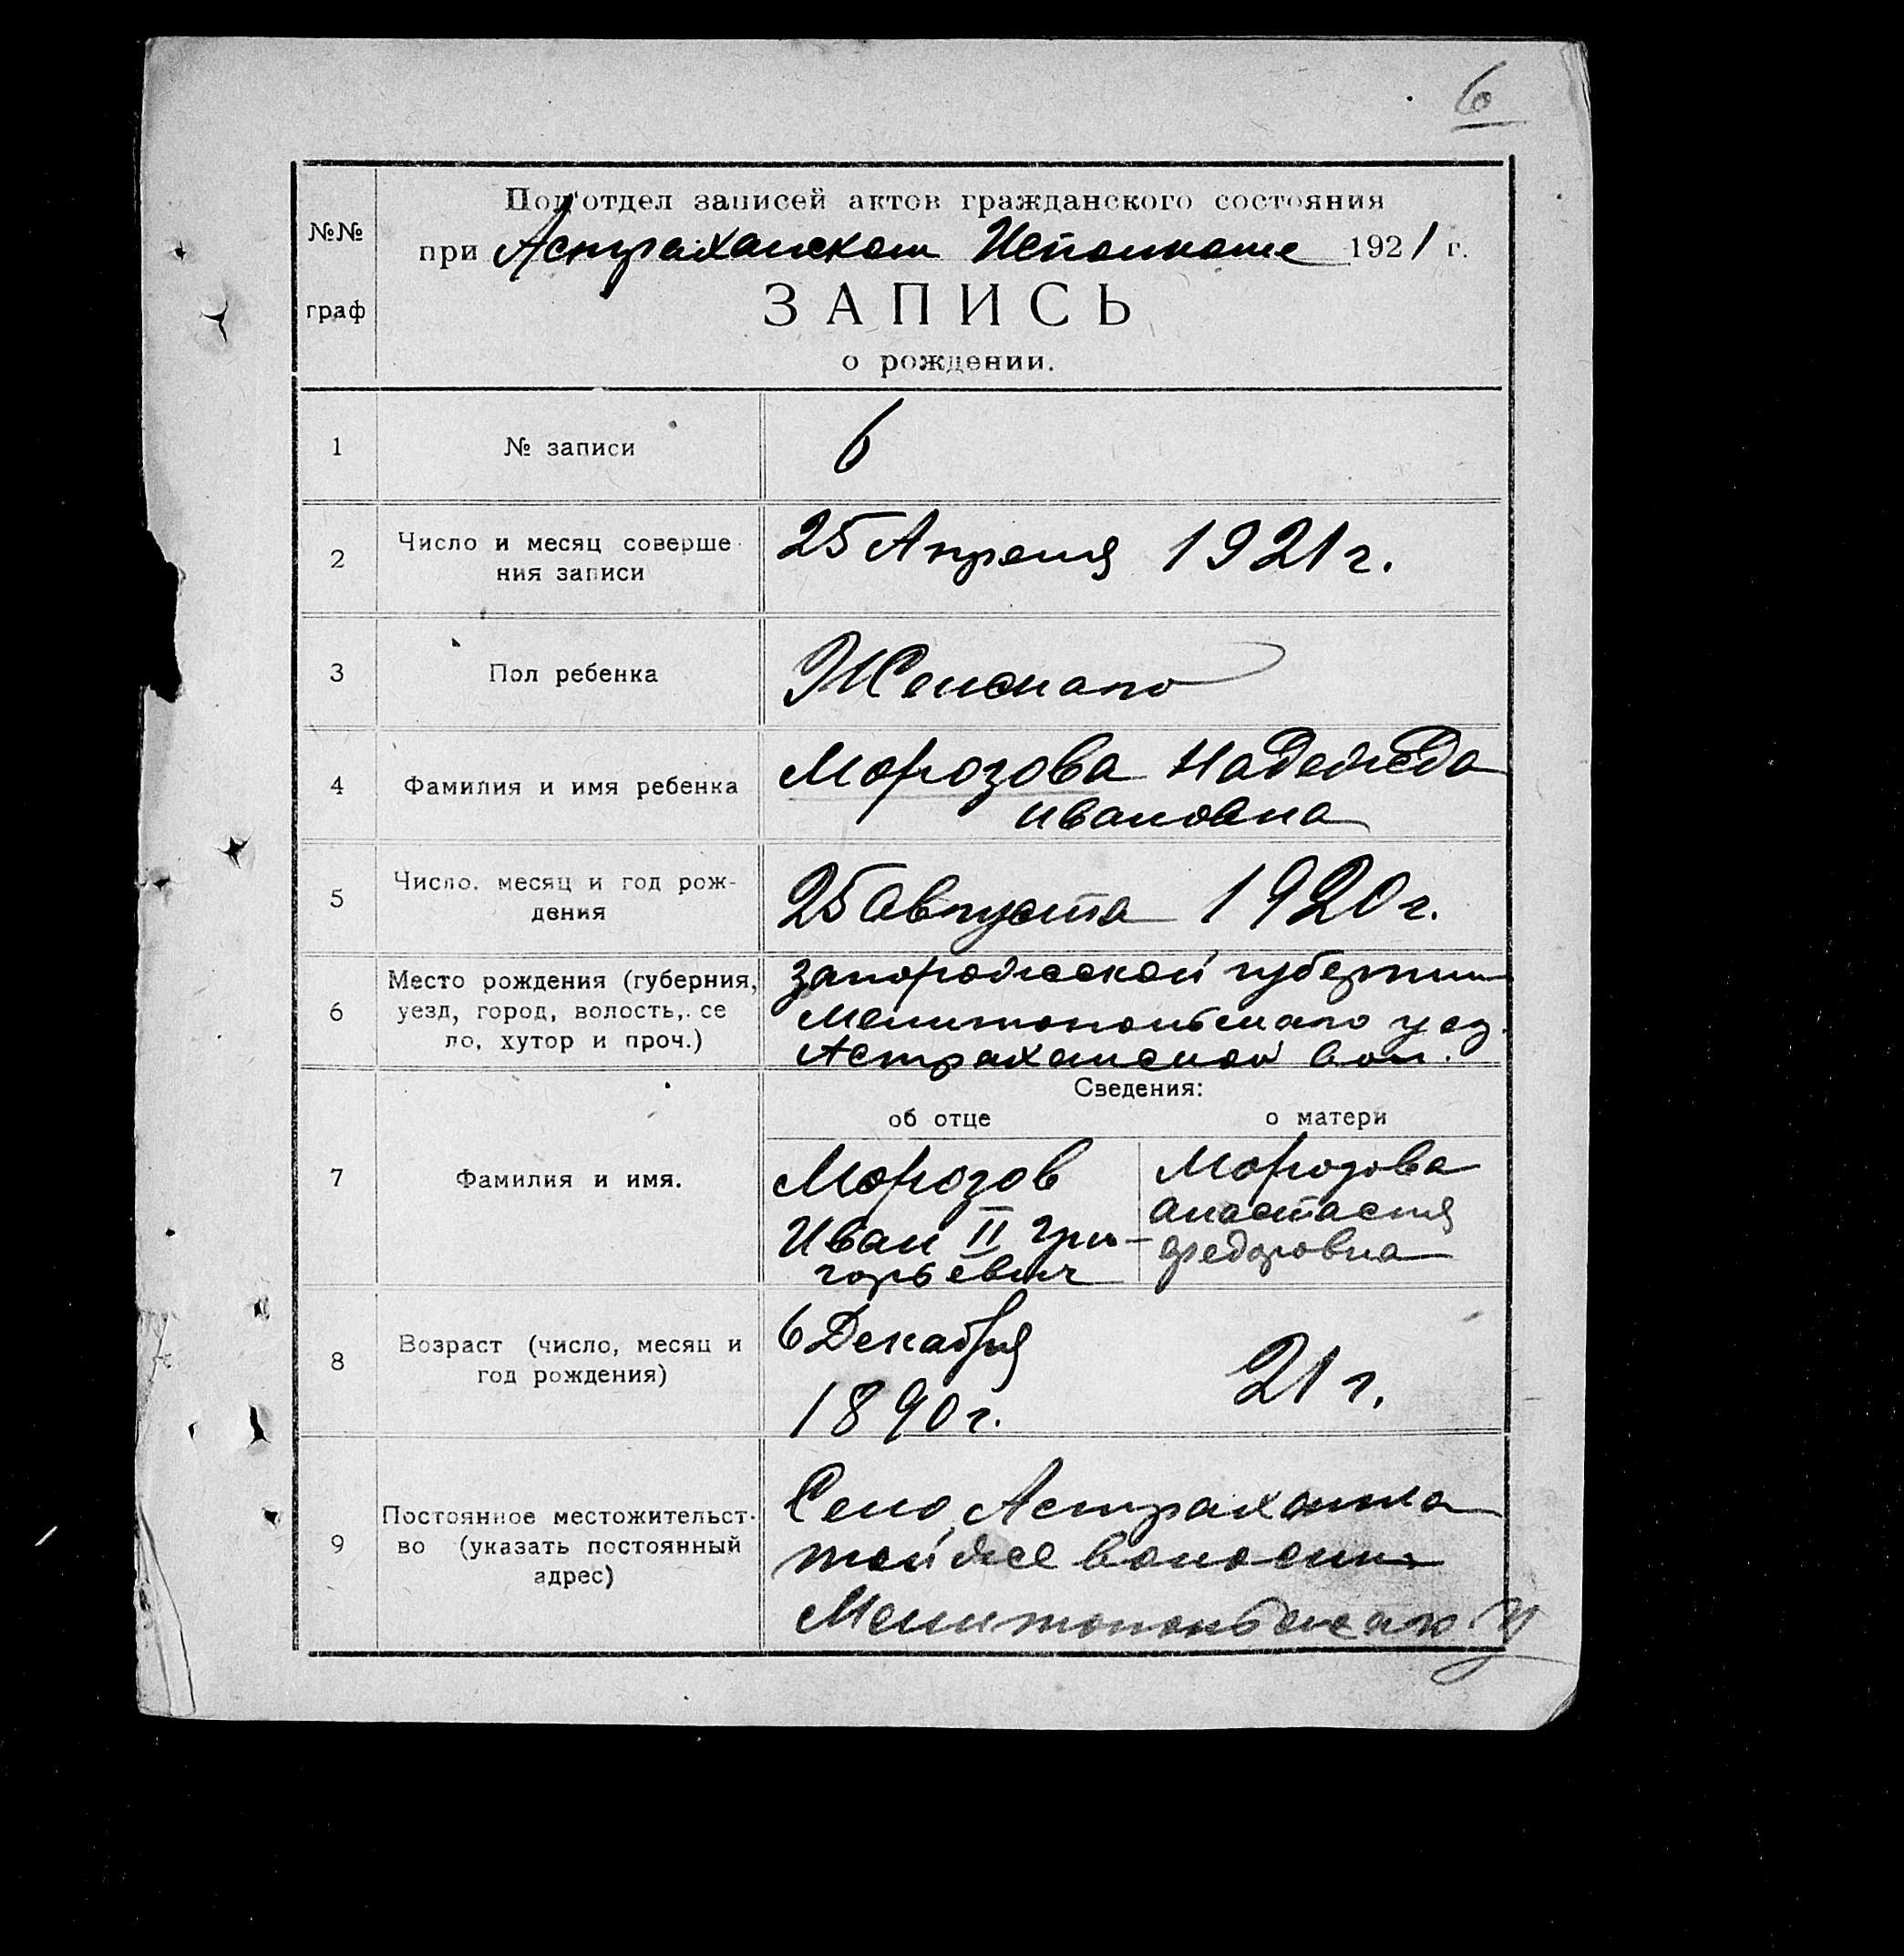 6
№№
граф
Под'отдел записей актов гражданского состояния
при Астраханском Исполкоме 1921 г.
ЗАПИСЬ
о рождении.
1 № записи 6
2 Число и месяц соверше-
ния записи
25 Апреля 1921 г.
3 Пол ребенка Женского
4 Фамилия и имя ребенка
Морозова Надежда
Ивановна
5 Число, месяц и год рож-
дения
25 Августа 1920 г.
6 Место рождения (губерния,
уезд, город, волость, се
ло, хутор и проч.)
Запорожской губернии
Мелитопольского уез.
Астраханской вол.
Сведения:
об отце о матери
7 Фамилия и имя.
Морозов
Иван II Гри-
горьевич
Морозова
Анастасия
Федоровна
8 Возраст (число, месяц и
год рождения)
6 Декабря
1890 г.
21 г.
9 Постоянное местожительст-
во (указать постоянный
адрес)
Село Астраханка
той же волости
Мелитопольского у